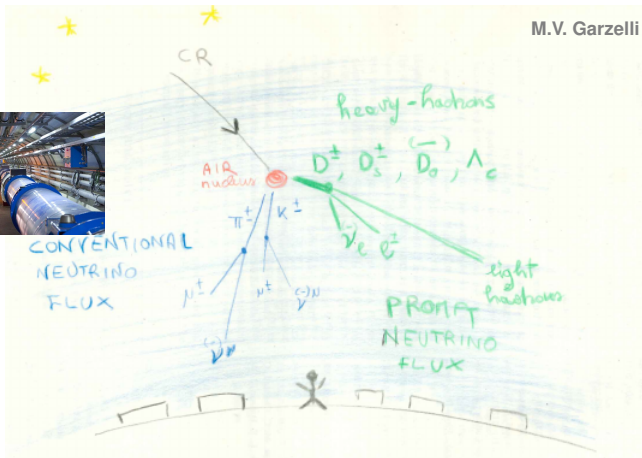 M.V. Garzelli
CR
heavy-hadrons
D±, Ds±, (—)D0, Λc
AIR
nucleus
π± K±
(-)νe e±
light
hadrons
CONVENTIONAL
NEUTRINO
FLUX
μ± μ± (-)νμ
(-)νμ
PROMPT
NEUTRINO
FLUX